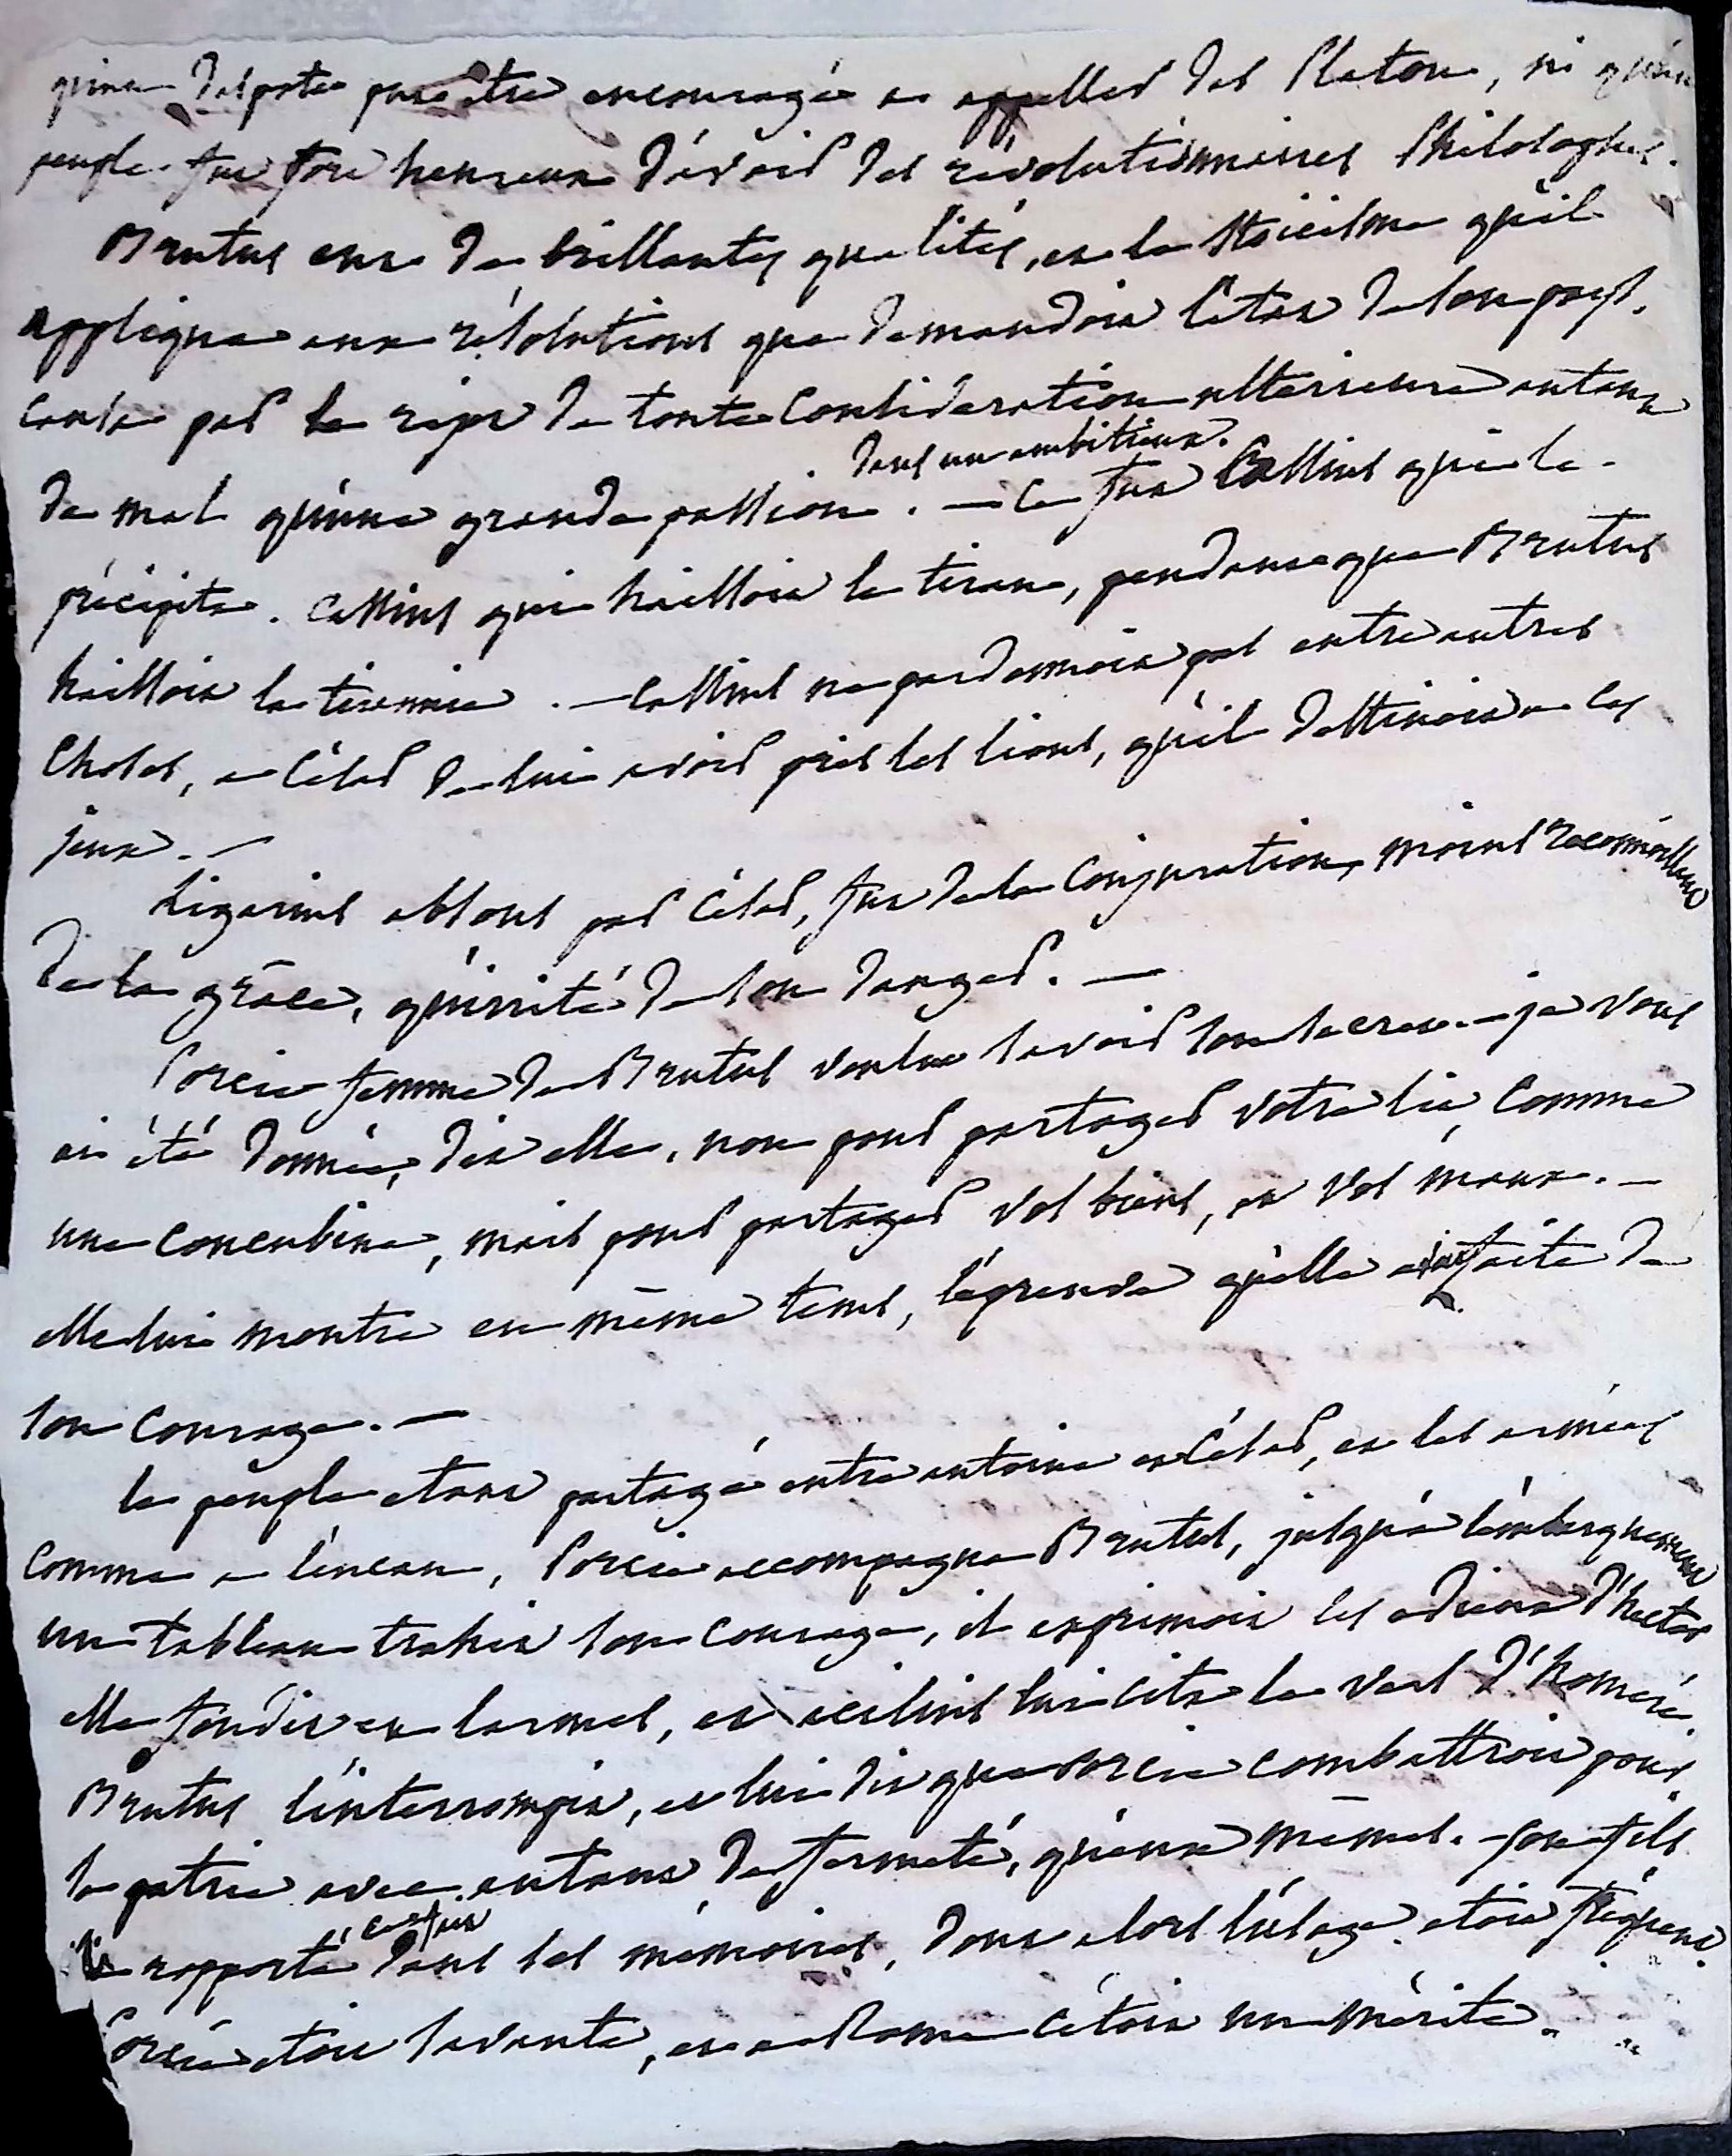 qu'un despote put être encouragé a appeller des Platon, ni qu'un
peuple fut fort heureux d'avoir des révolutionnaires Philosophes.
Brutus eut de brillantes qualités, et le stoicisme qu'il
appliqua aux résolutions que demandoit l'état de son pays.
causa par le de toute considération ulterieure autant
de mal qu'une grande passion dans un ambitieux. — ce fut Cassius qui le
précipita. Cassius qui haissoit le tiran, pendant que Brutus
haissoit la tirannie. — Cassius ne pardonnoit pas entre autres
choses, a César de lui avoir pris les lions, qu'il destinoit a ces
jeux. —
Ligarius absous par César, fut de la conjuration, moins reconnoissant
de la grâce, qu'irrité de son danger. —
Porcie femme de Brutus voulut savoir son secret. — je vous
ai été donnée, dit elle, non pour partager votre lit, comme
une concubine, mais pour partager vos biens, et vos maux. —
elle lui montra en même tems, l'épreuve qu'elle avoit faite de
son courage. —
le peuple etant partagé entre antoine et César, et les armées
comme a l'encan, Porcie accompagna Brutus, jusqu'a l'embarquement
un tableau trahit son courage, il exprimoit les adieux d'hector
elle fondit en larmes, et acilius lui cita le vers d'homere.
Brutus l'interrompit, et lui dit que Porcie combattroit pour
la patrie avec autant de fermeté, qu'eux mêmes. — son fils
a rapporté ce fait dans ses mémoires, dont alors l'usage etoit fréquent.
Porcie etoit savante, et a Rome c'étoit un mérite.